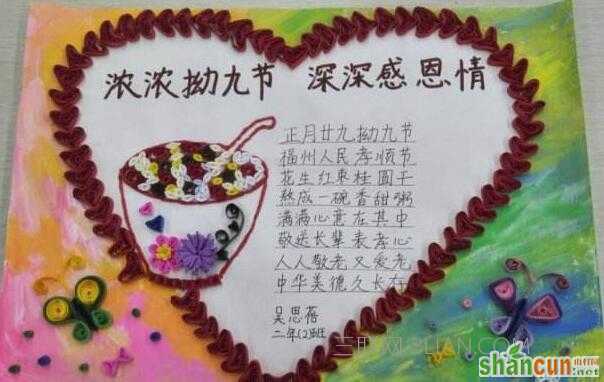 浓浓拗九节 深深感恩情
正月廿九拗九节
福州人民孝顺节
花生红枣桂圆干
熬成一碗香甜粥
满满心意在其中
敬送长辈表孝心
人人敬老又爱老
中华美德久长存
吴思蓓
二年(2)班
shancun
.net